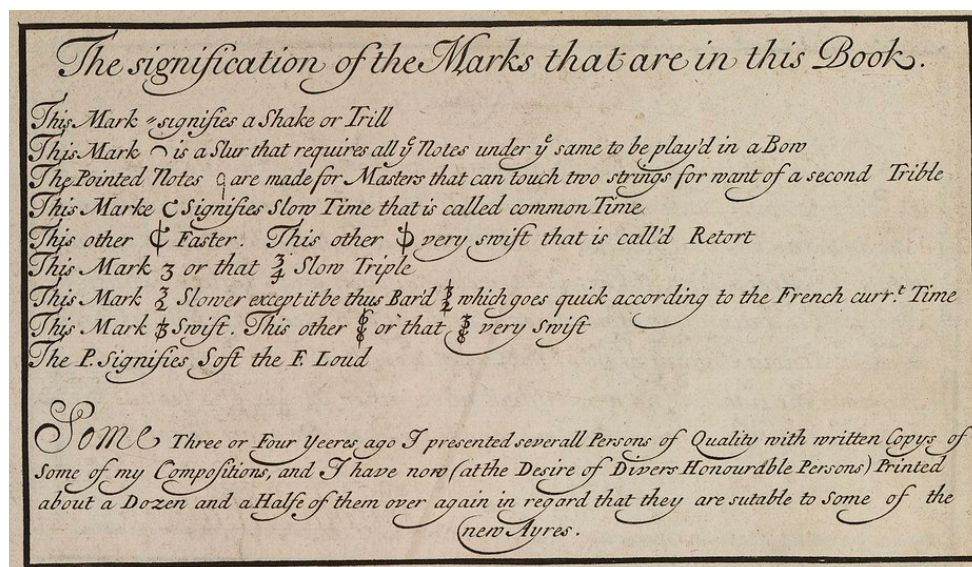 The signification of the Marks that are in this Book.
This Mark 〃 signifies a Shake or Trill
This Mark ⌒ is a Slur that requires all yͤ Notes under yͤ same to be play'd in a Bow
The Pointed Notes are made for Masters that can touch two strings for want of a second Trible
This Marke C Signifies Slow Time that is called common Time
This other ₵ Faster. This other very swift that is call'd Retort
This Mark 3 or that 3/4 Slow Triple
This Mark 3/2 Slower except it be thus Bar'd which goes quick according to the French curr.ᵗ Time
This Mark Swift. This other or that very swift
The P. Signifies Soft the F. Loud
Some Three or Four Yeeres ago I presented severall Persons of Quality with written Copys of
Some of my Compositions, and I have now (at the Desire of Divers Honourable Persons) Printed
about a Dozen and a Halfe of them over again in regard that they are sutable to Some of the
new Ayres.